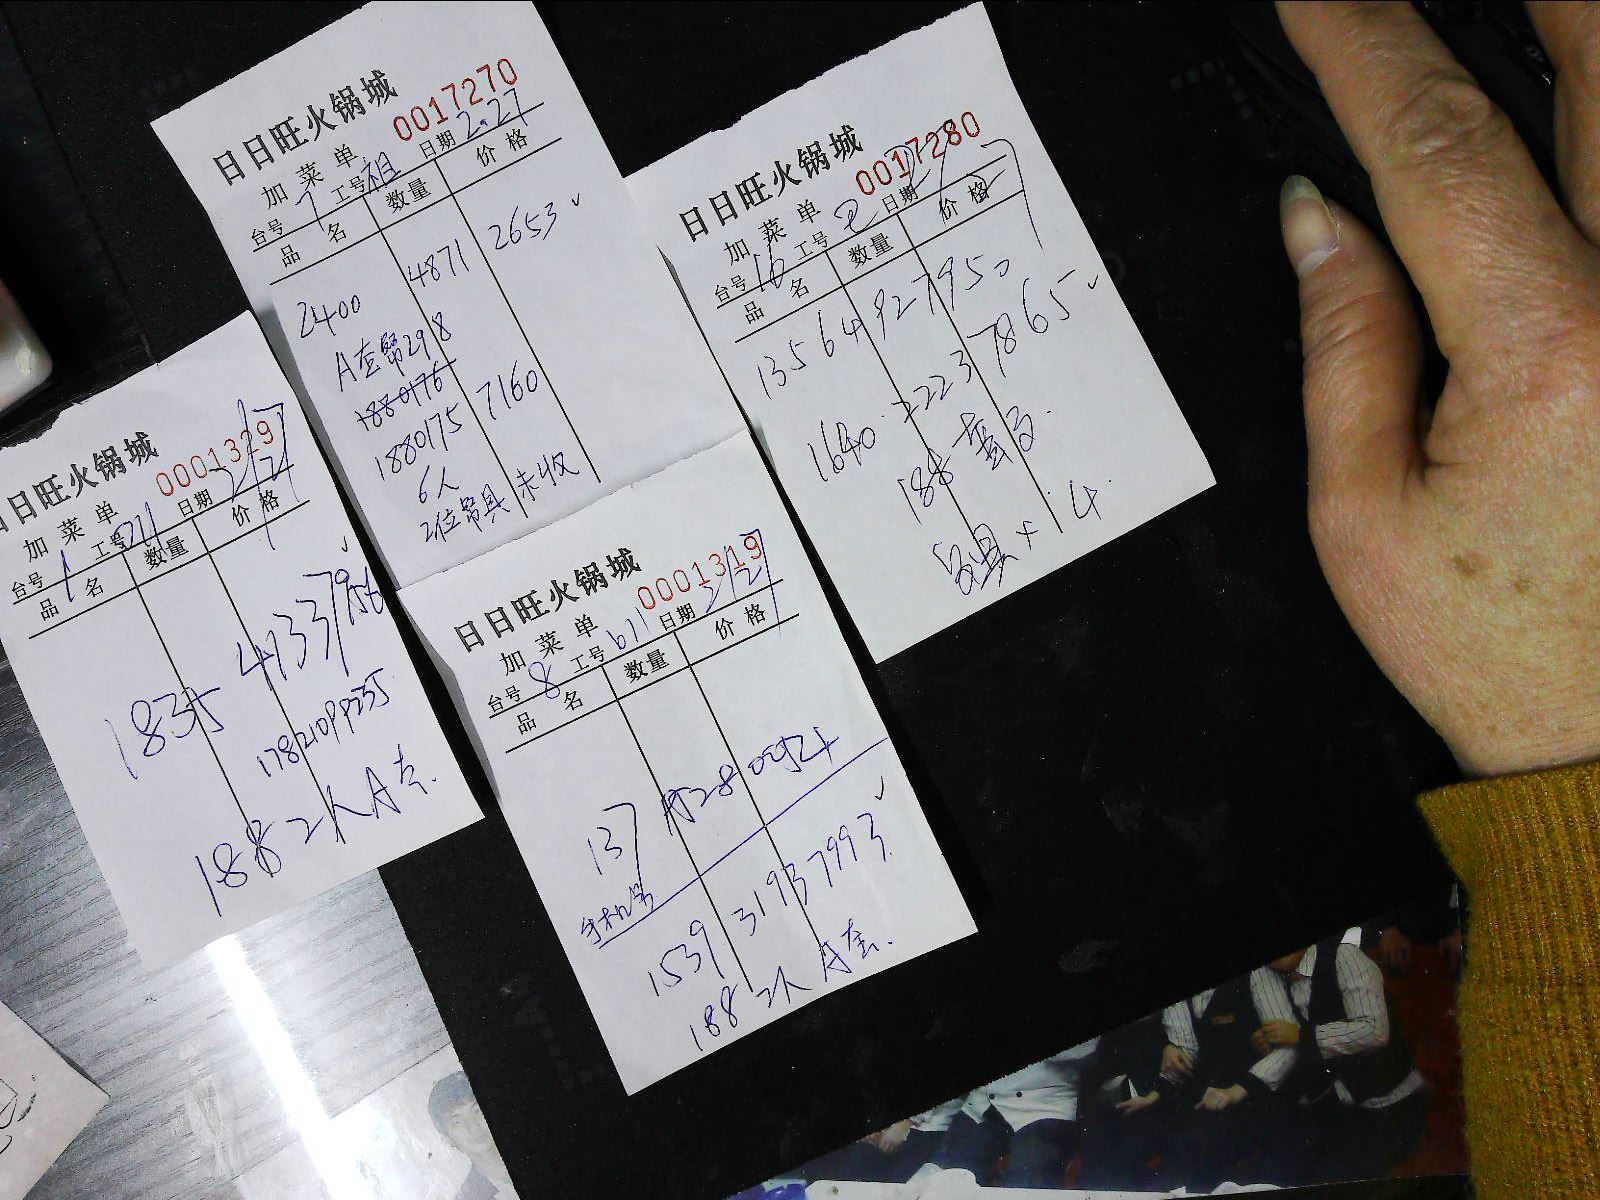 日日旺火锅城
0017270
加菜单
台号 7 工号 祖 日期 2.27
品名 数量 价格
2400 4871 2653 ✓
A套餐298
1880176
1880175 7160
6人
2位餐具 未收
日日旺火锅城
0017280
加菜单
台号 16 工号 日期
品名 数量 价格
13564927950
1640 2223 7865 ✓
188 套
餐具×4.
日日旺火锅城
0001329
加菜单
台号 1 工号 日期 2/27
品名 数量 价格
1835 41337
17821099235
188 2人A套.
日日旺火锅城
0001319
加菜单
台号 8 工号 611 日期 2/27
品名 数量 价格
137
手机号
1539 3193 7993 ✓
188 2人 A套.